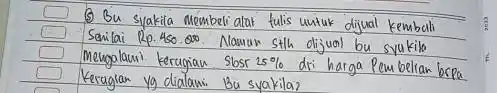 ⑧ Bu syakila membeli alat tulis untuk dijual kembali
Senilai Rp. 450.000. Namun stlh dijual bu syakila
Mengalami kerugian sbsr 25% dri harga Pembelian brpa
kerugian yg dialami Bu syakila?